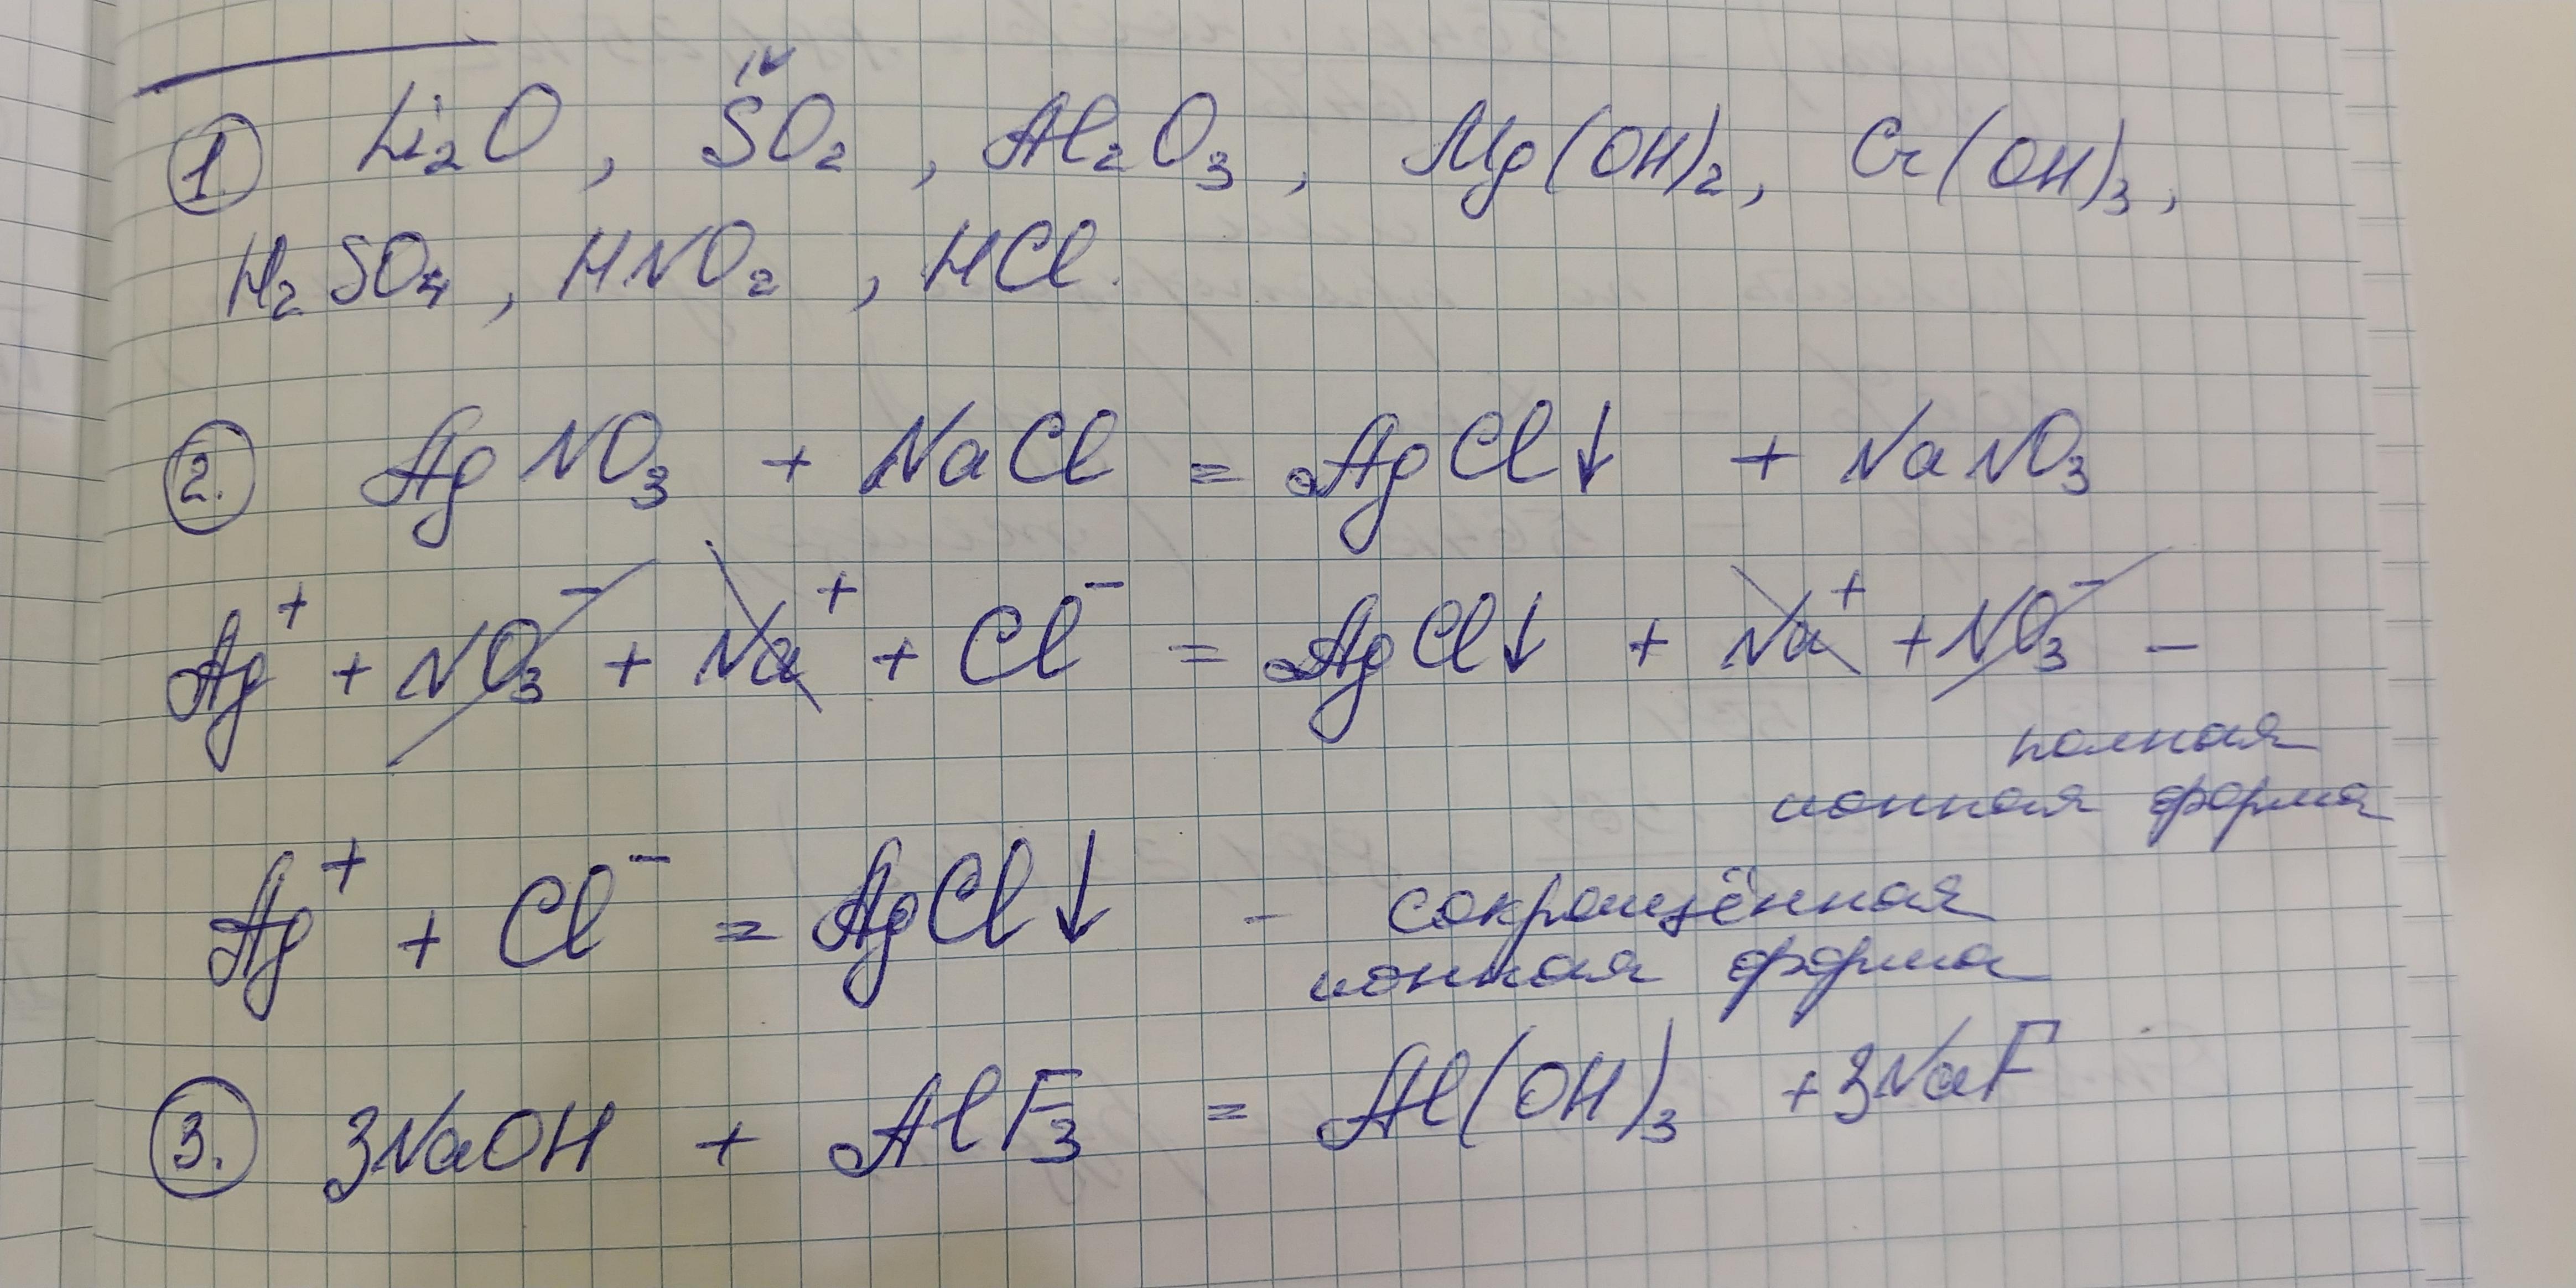 1. Li₂O, SO₂, Al₂O₃, Mg(OH)₂, Cr(OH)₃,
IV
H₂SO₄, HNO₂, HCl.
2. AgNO₃ + NaCl = AgCl↓ + NaNO₃
Ag⁺ + NO₃⁻ + Na⁺ + Cl⁻ = AgCl↓ + Na⁺ + NO₃⁻ –
полная
ионная форма
Ag⁺ + Cl⁻ = AgCl↓ - сокращённая
ионная форма
3. 3NaOH + AlF₃ = Al(OH)₃ + 3NaF